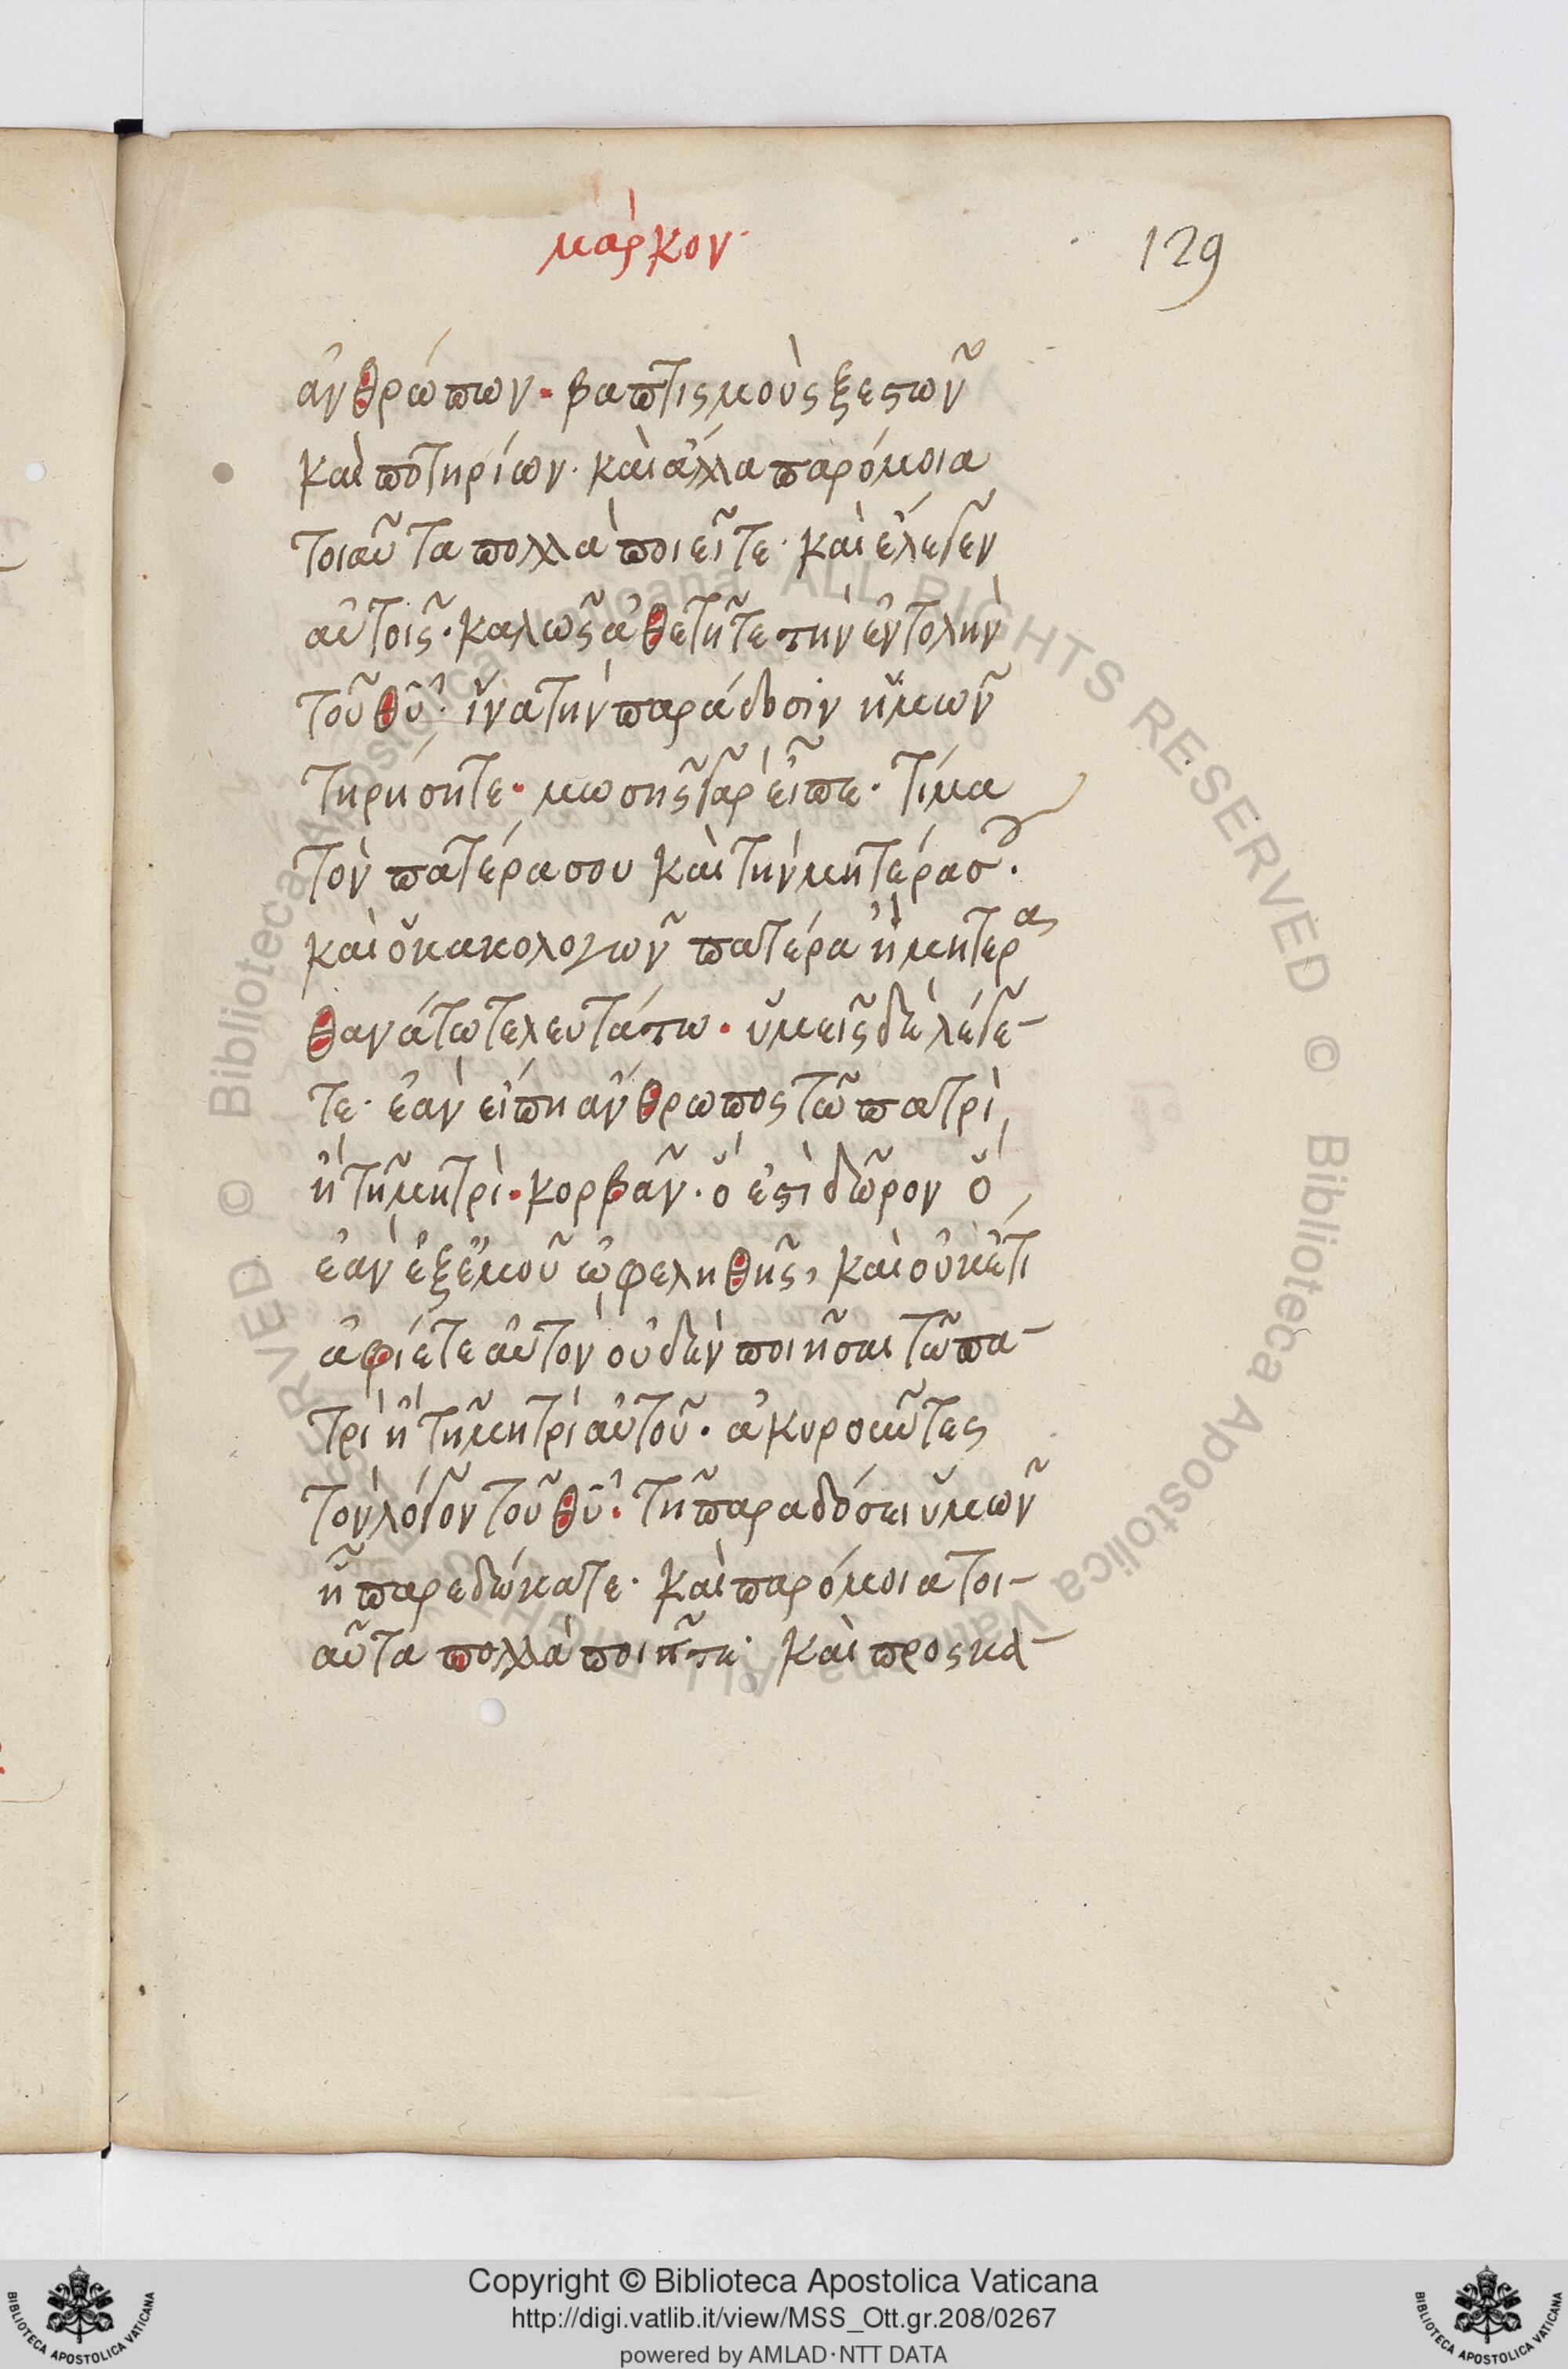 μάρκον·
129
ἀνθρώπων· βαπτισμοὺς ξεστῶν
καὶ ποτηρίων· καὶ ἄλλα παρόμοια
τοιαῦτα πολλὰ ποιεῖτε· καὶ ἔλεγεν
αὐτοῖς· καλῶς ἀθετῆτε τὴν ἐντολὴν
τοῦ θυ̅· ἵνα τὴν παράδοσιν ἡμῶν
τηρήσητε· μωσῆς γὰρ εἶπε· τίμα
τὸν πατέρα σου καὶ τὴν μητέρα σου·
καὶ ὁ κακολογῶν πατέρα ἢ μητέρα
θανάτω τελευτάτω· ὑμεῖς δὲ λέγε-
τε· ἐὰν εἴπη ἄνθρωπος τῶ πατρὶ,
ἢ τῆ μητρὶ· κορβᾶν· ὅ ἐστὶ δῶρον ὃ,
ἐὰν ἐξ ἐμοῦ ὠφεληθῆς, καὶ οὐκέτι
ἀφίετε αὐτὸν οὐδὲν ποιῆσαι τῶ πα-
τρὶ ἢ τῆ μητρὶ αὐτοῦ· ἀκυροῦντες
τὸν λόγον τοῦ θυ̅· τῆ παραδόσει ὑμῶν
ἧ παρεδώκατε· καὶ παρόμοια τοι-
αῦτα πολλὰ ποιῆτε· καὶ προσκα-
Copyright © Biblioteca Apostolica Vaticana
http://digi.vatlib.it/view/MSS_Ott.gr.208/0267
powered by AMLAD·NTT DATA